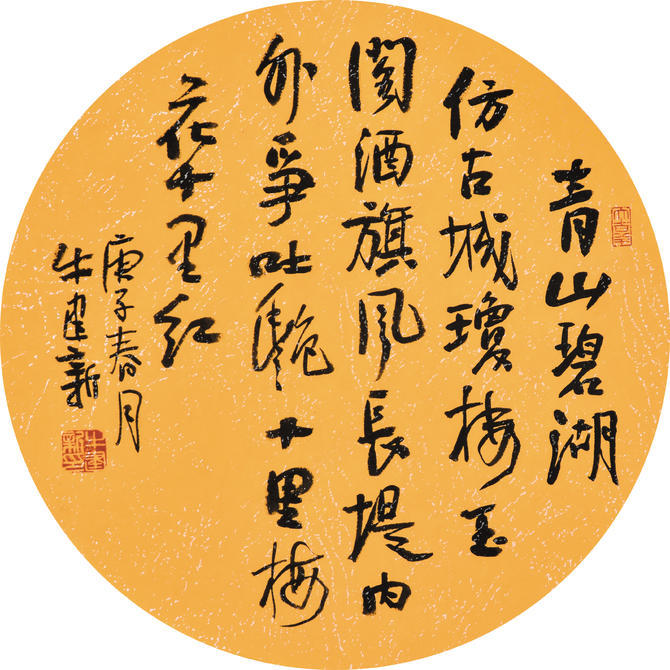 青山碧湖
仿古城瓊樓玉
閣酒旗风長堤内
外爭吐艷十里梅
花十里红
庚子春月
牛建新